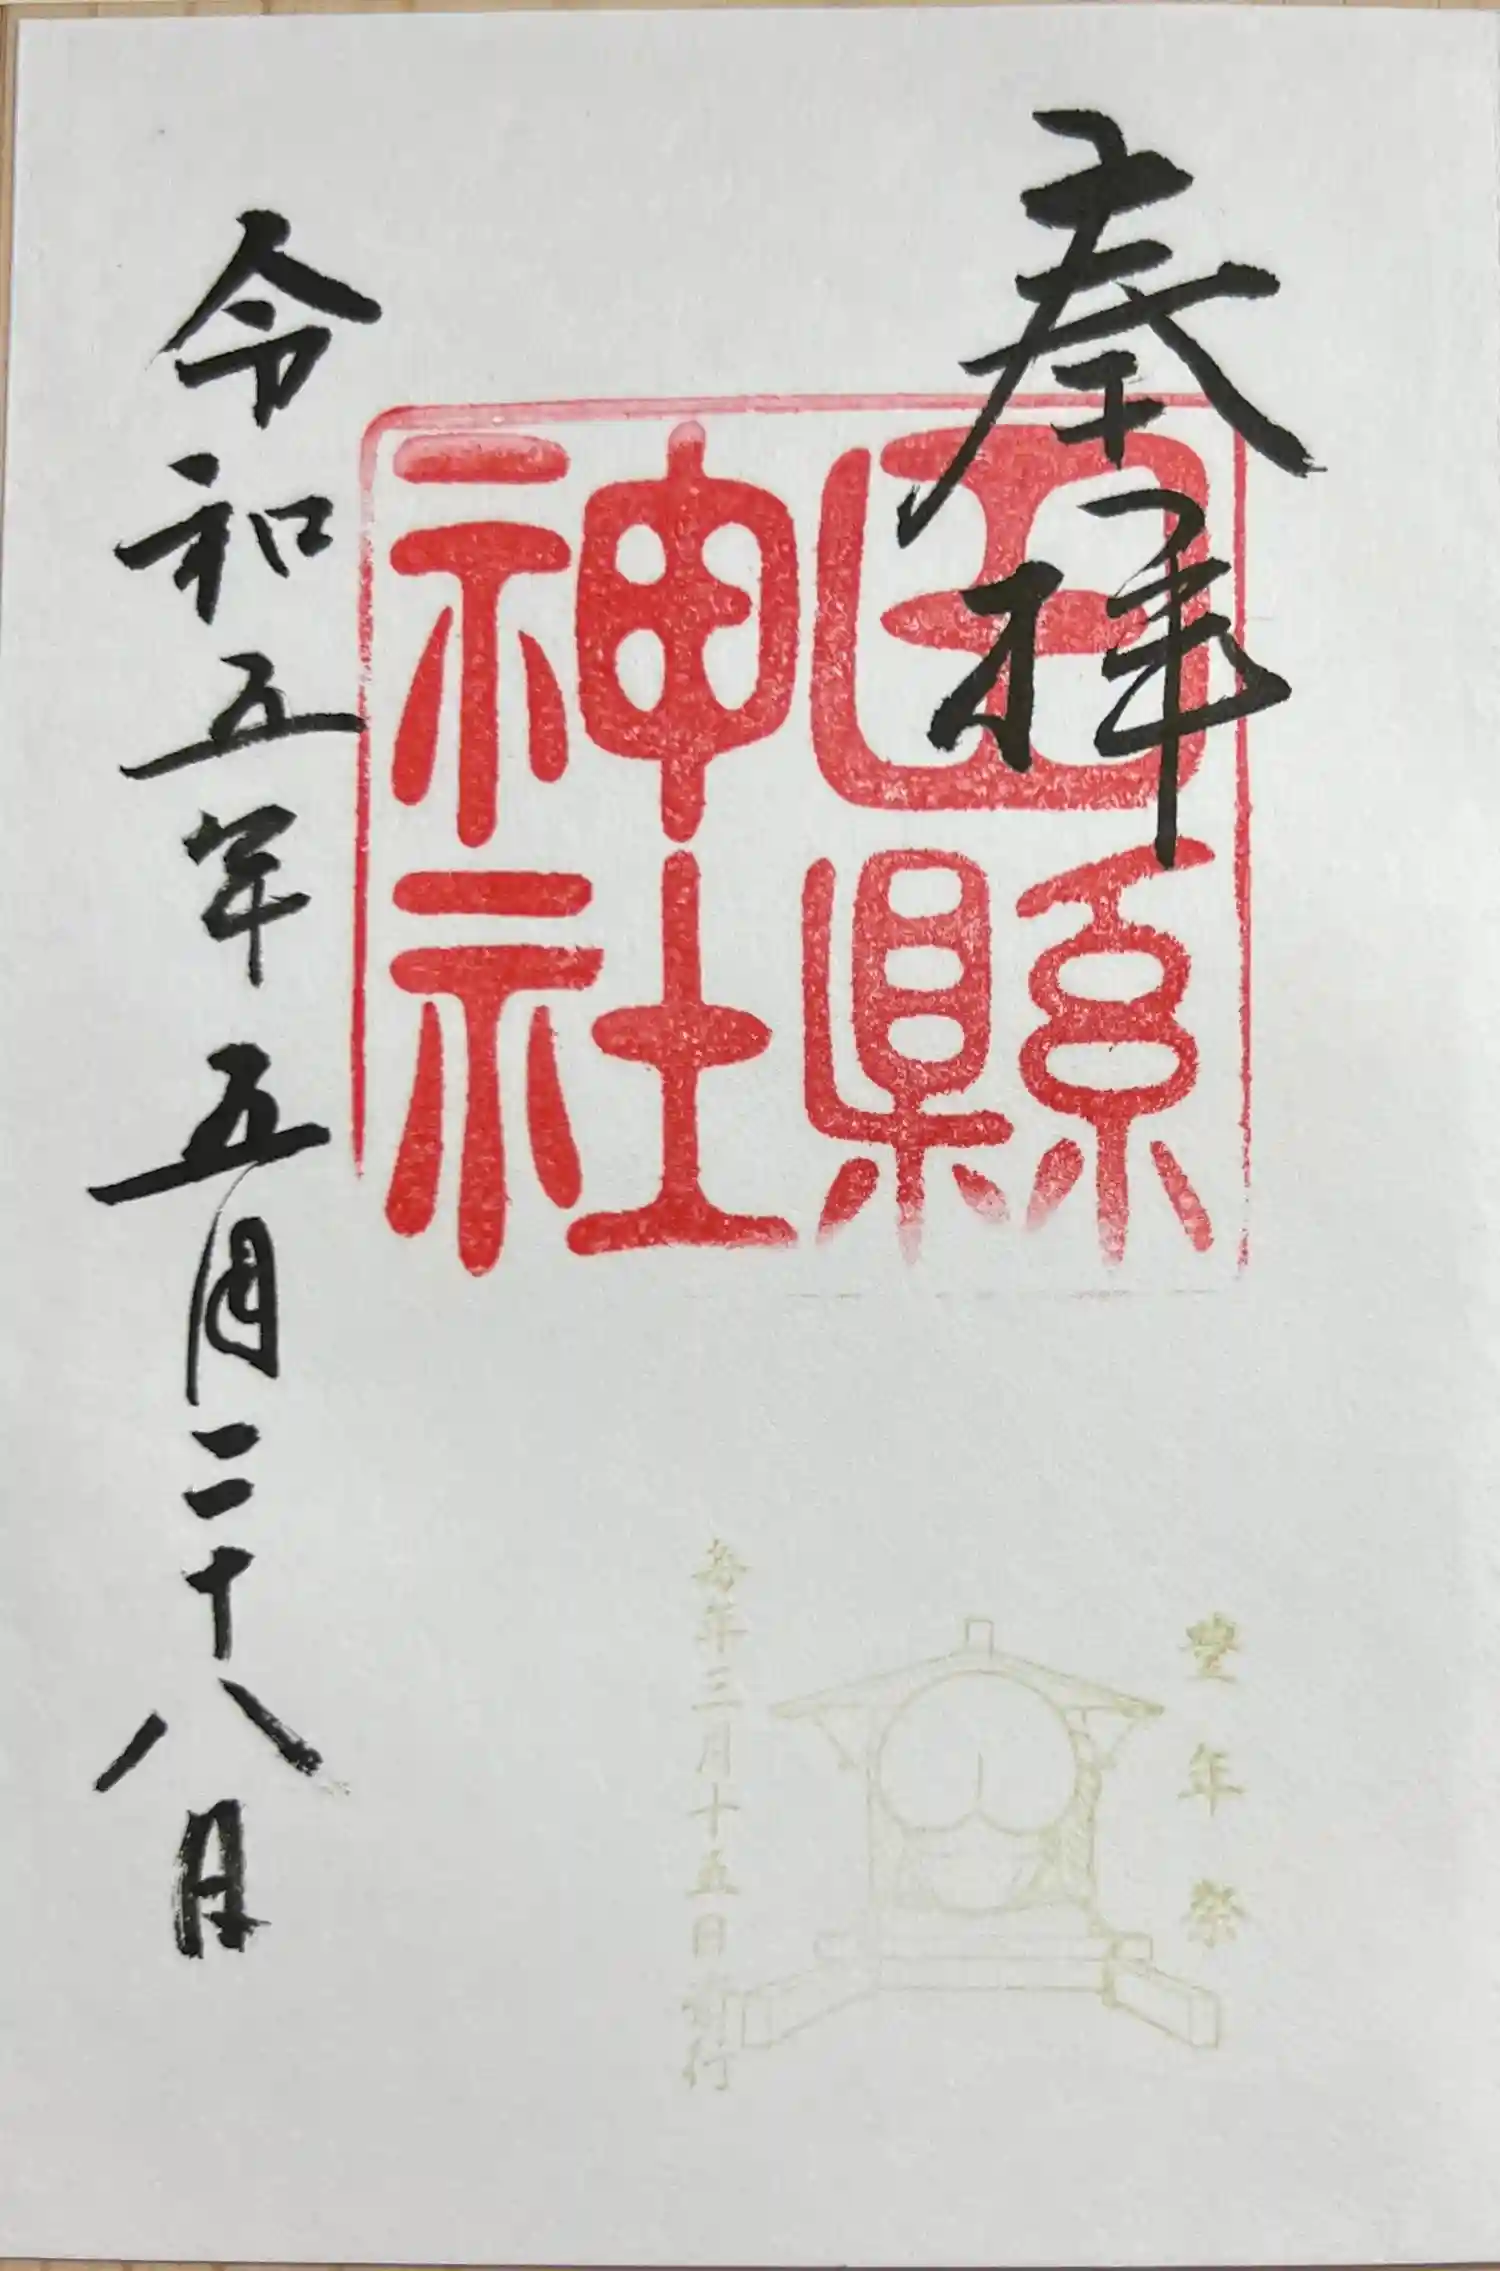 奉拝
田縣
神社
令和五年五月二十八日
豊年祭
毎年三月十五日行